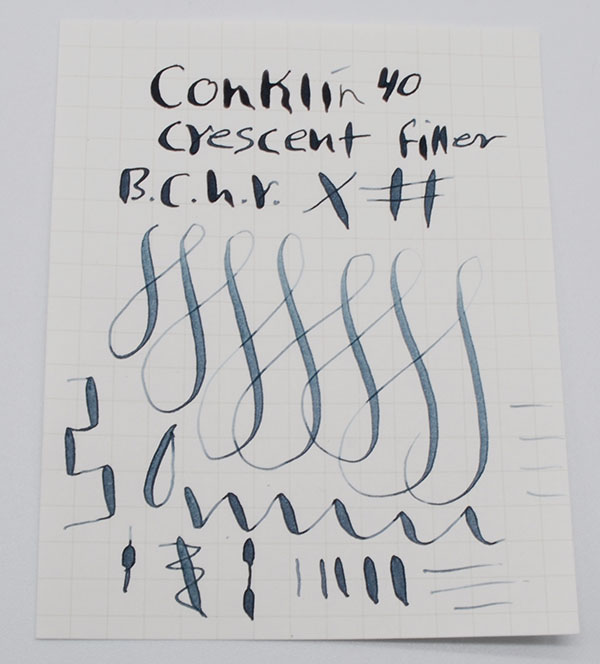 Conklin 40
Crescent filler
B.C.h.r.